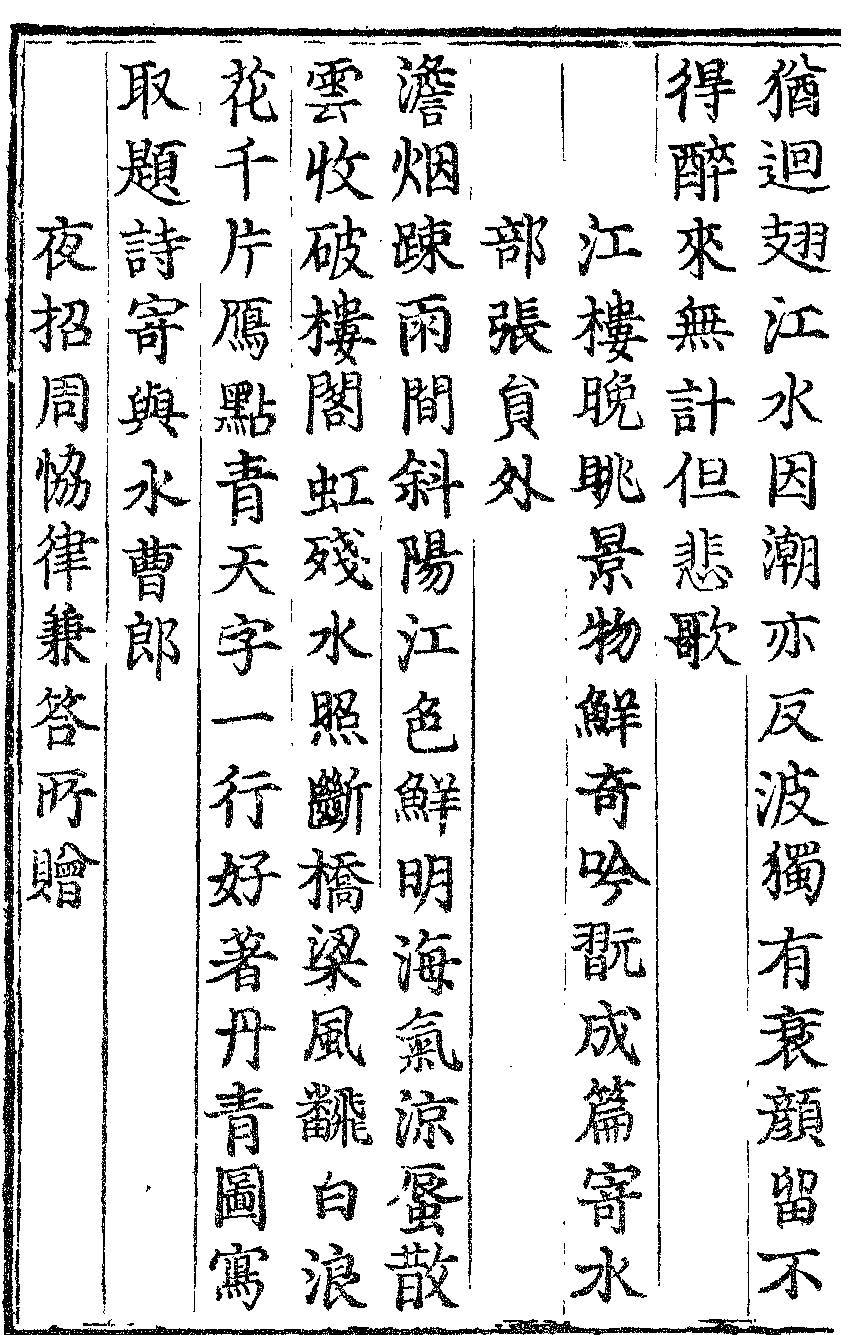 猶迴翅江水因潮亦反波獨有衰顔留不
得醉來無計但悲歌
江樓晚眺景物鮮奇吟翫成篇寄水
部張貟外
澹烟踈雨間斜陽江色鮮明海氣涼蜃散
雲收破樓閣虹殘水照斷橋梁風飜白浪
花千片鴈點青天字一行好著丹青圖寫
取題詩寄與水曹郎
夜招周恊律兼答所贈